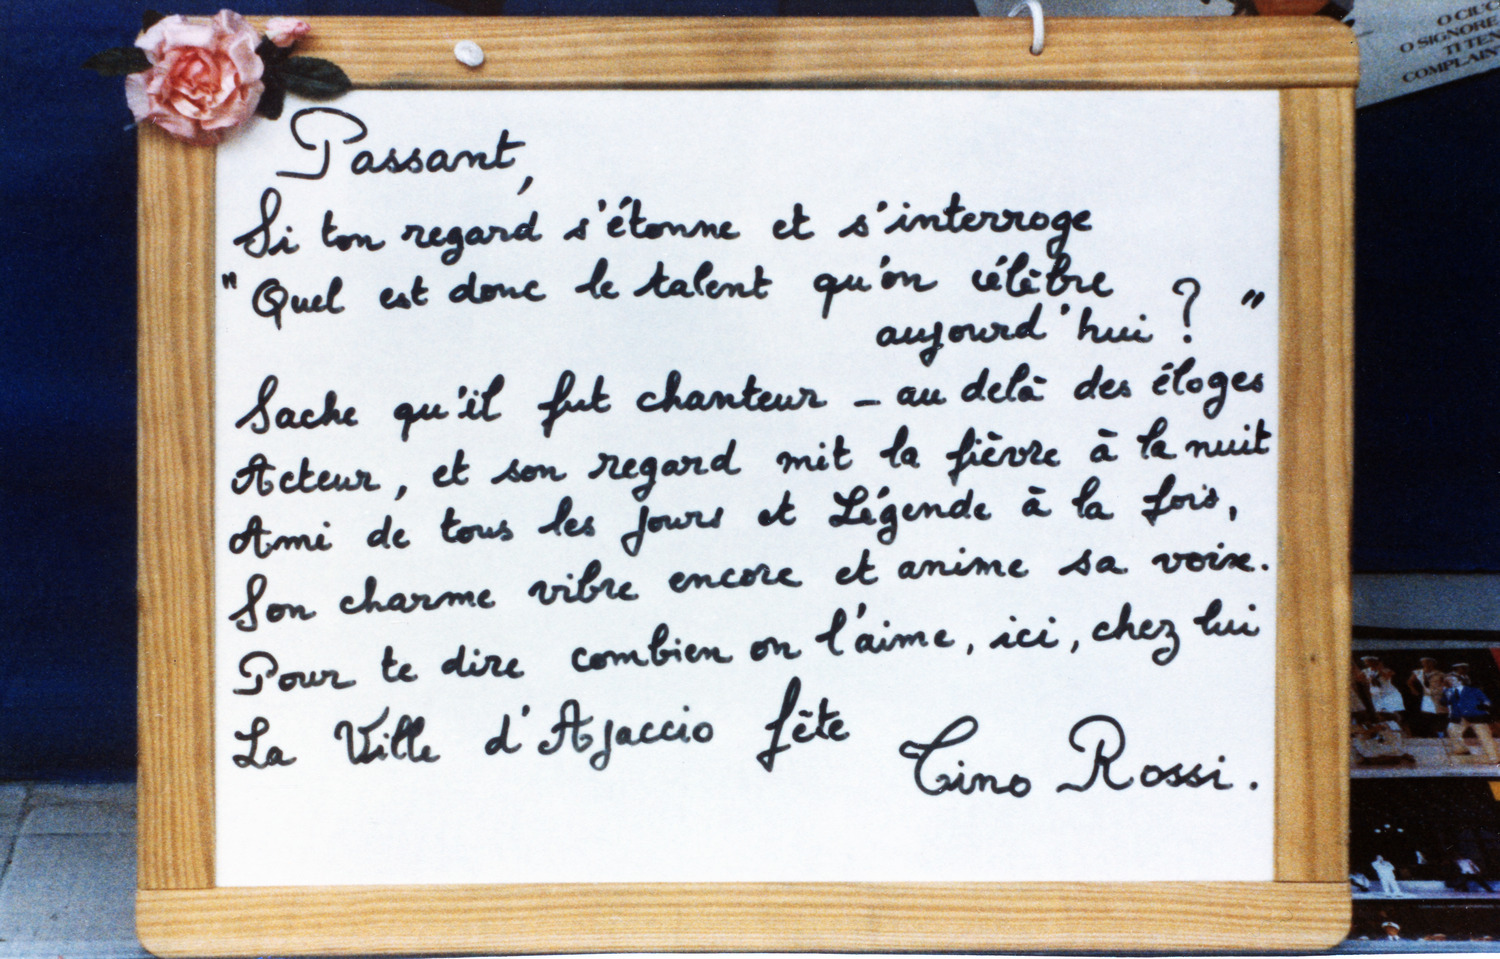 Passant,
Si ton regard s'étonne et s'interroge
"Quel est donc le talent qu'on célèbre
aujourd'hui ? "
Sache qu'il fut chanteur _ au delà des éloges
Acteur, et son regard mit la fièvre à la nuit
Ami de tous les jours et Légende à la fois,
Son charme vibre encore et anime sa voix.
Pour te dire combien on l'aime, ici, chez lui
La Ville d'Ajaccio fête
Tino Rossi.
O SIGNORE
TI TEN
COMPLAIN